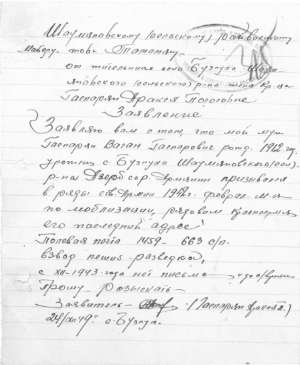 Шаумяновскому (сельскому) райвоенкому
Майору тов. Татоняну
от жительница села Бузлук Шаум
яновского (сельского) р-на жена кр-ца
Гаспарян Драксия Погосовне
Заявление
Заявляю вам о том, что мой муж
Гаспарян Ваган Гаспарович рожд. 1912 год.
урожен. с Бузлука Шаумяновского (сел).
р-на Азерб ССР Армянин призывался
в ряды Сов. Армии 1942 г. феврал м-ца
по мобилизации, рядовым
его последний адрес
Полевая почта 1459 - 663 с/п.
взвод пешей разведки,
с XII-1943 года нет письмо
Прошу розыскать
Заявитель - (Гаспарян Драксия.)
24/XII 49 г. с Бузлук.